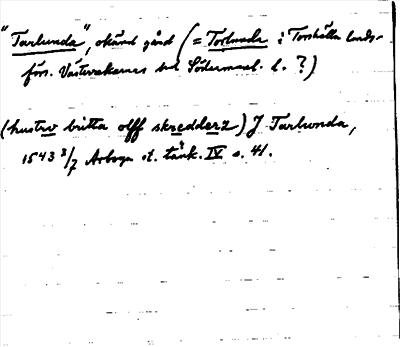 "Tarlunda", okänd gård (= Torlunda i Torshälla lands-
förs. Västerrekarnes hd Södermanl. l. ?)
(hustrv britta olff skredderz) J Tarlwnda,
1543 3/7 Arboga st. tänk. IV s. 41.